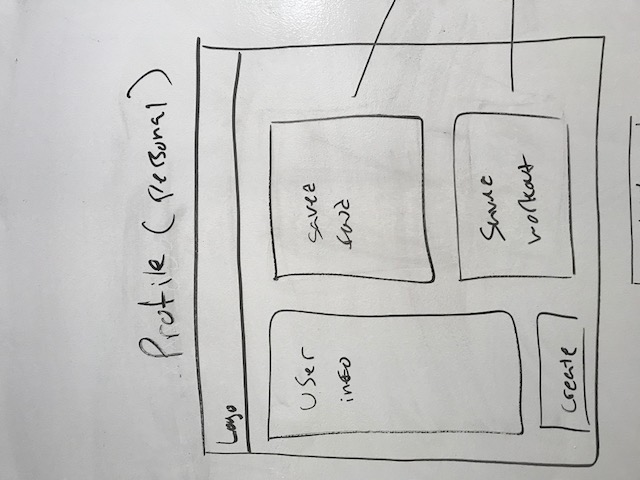 Profile (personal)
Logo
User
info
saved
food
Saved
workout
Create